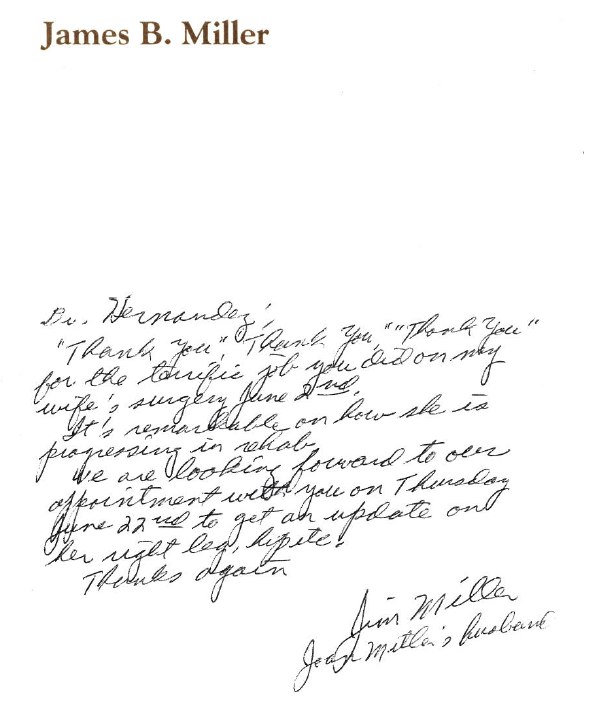 James B. Miller
Dr. Hernandez,
"Thank You", "Thank You", "Thank You"
for the terrific job you did on my
wife's surgery June 2nd.
It's remarkable on how she is
progressing in rehab.
We are looking forward to our
appointment with you on Thursday
June 22nd to get an update on
her right leg, hip etc.
Thanks again
Jim Miller
Miller's husband